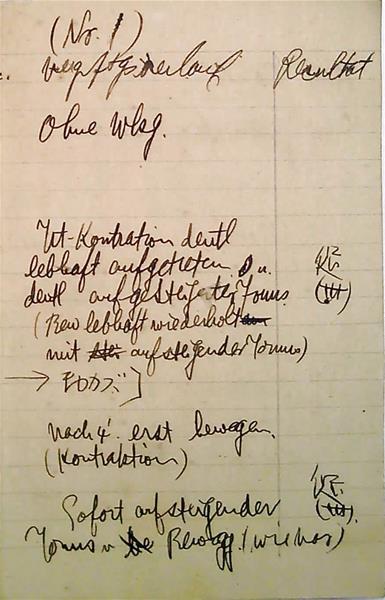 (No. 1)
Resultat
Ohne Wkg.
Ut-Kontration deutl
lebhaft aufgetreten u.
deutl aufgesteigerter Tonus
(Bew lebhaft wiederholt
mit aufsteigender Tonus)
→
nach 4'. erst bewegen.
(Kontraktion)
Sofort aufsteigender
Tonus u Bewegg. (wie vor)